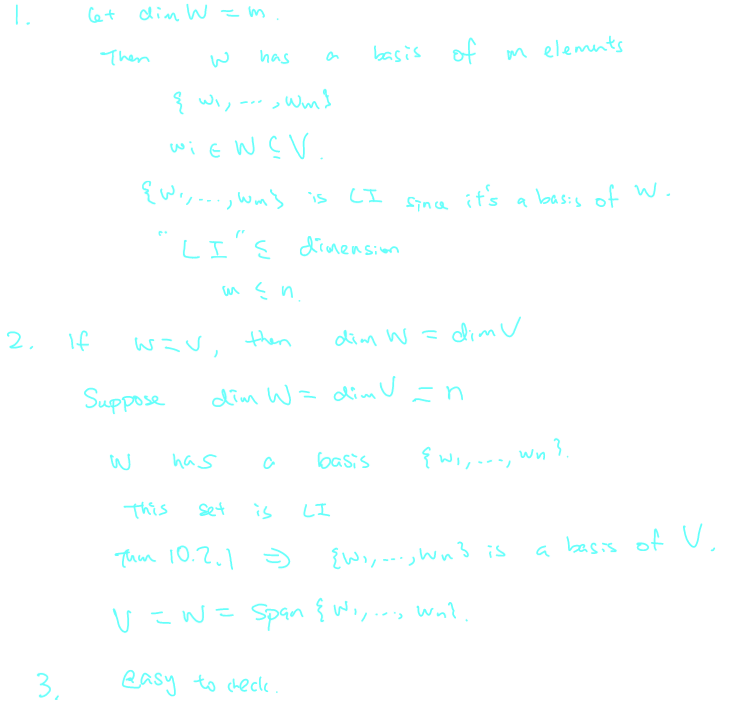 1. Let dim W = m.
Then W has a basis of m elements
{ w₁, ..., wₘ}
wᵢ ∈ W ⊆ V.
{w₁, ..., wₘ} is LI since it's a basis of W.
"LI" ≤ dimension
m ≤ n.
2. If W = V, then dim W = dim V
Suppose dim W = dim V = n
W has a basis {w₁, ..., wₙ}.
This set is LI
Thm 10.2.1 ⇒ {w₁, ..., wₙ} is a basis of V.
V = W = Span {w₁, ..., wₙ}.
3. Easy to check.